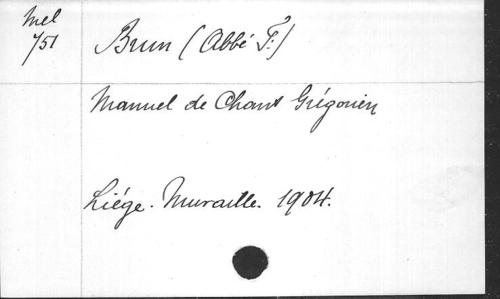 Mel
751
Brun (Abbé F.)
Manuel de Chant Grégorien
Liége. Muraille. 1904.